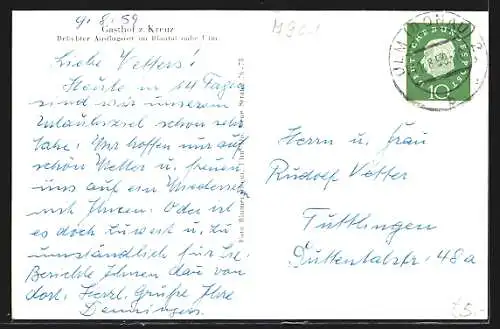 9. 8. 59
Gasthof z. Kreuz
Beliebter Ausflugsort im Blautal nahe Ulm
Liebe Vetters!
Heute in 14 Tagen
sind wir unserem
Urlaubsziel schon sehr
nahe! Wir hoffen nur auf
schön Wetter u. freuen
uns auf ein Wiedersehen
mit Ihnen. Oder ist
es doch zu weit u. zu
umständlich für Sie.
Berichte Ihnen dau von
dort. Herzl. Grüße Ihre
Denningers.
M90.1
ULM (DONAU) 2
DEUTSCHE BUNDESPOST
10
Herrn u. Frau
Rudolf Vetter
Tuttlingen
Ruttentalstr. 48a